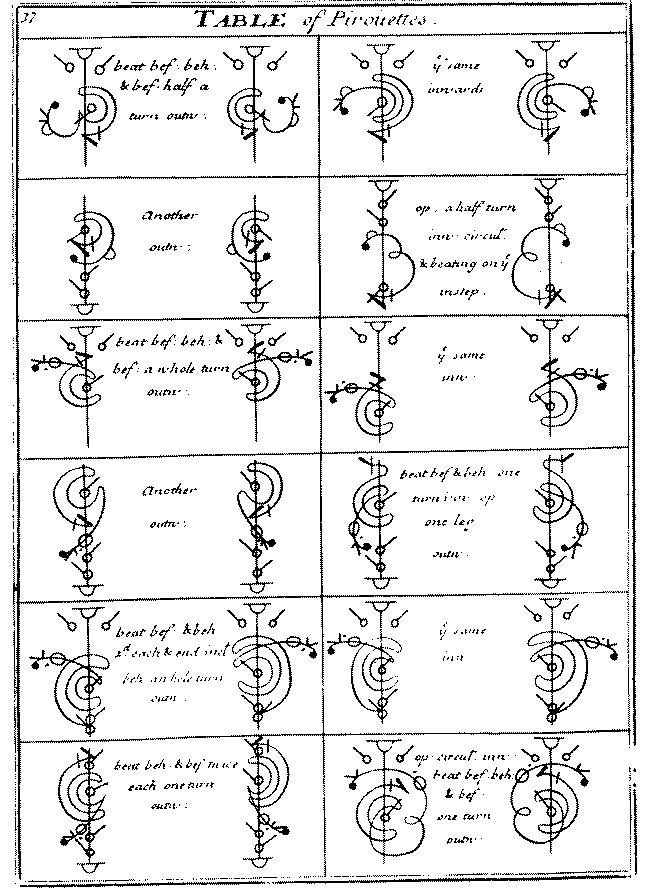 37
TABLE of Pirouettes.
beat bef: beh:
& bef: half a
turn outw:
ÿ same
inwards
Another
outw:
op. a half turn
inw: circul:
& beating on ÿ
instep.
beat bef: beh: &
bef: a whole turn
outw:
ÿ same
inw:
Another
outw:
beat bef & beh: one
turn inw: op
one leg
outw:
beat bef: & beh
each & end
beh: whole turn
outw:
ÿ same
inw
beat beh: & bef twice
each one turn
outw:
op: circul: inw:
beat bef: beh:
& bef:
one turn
outw: